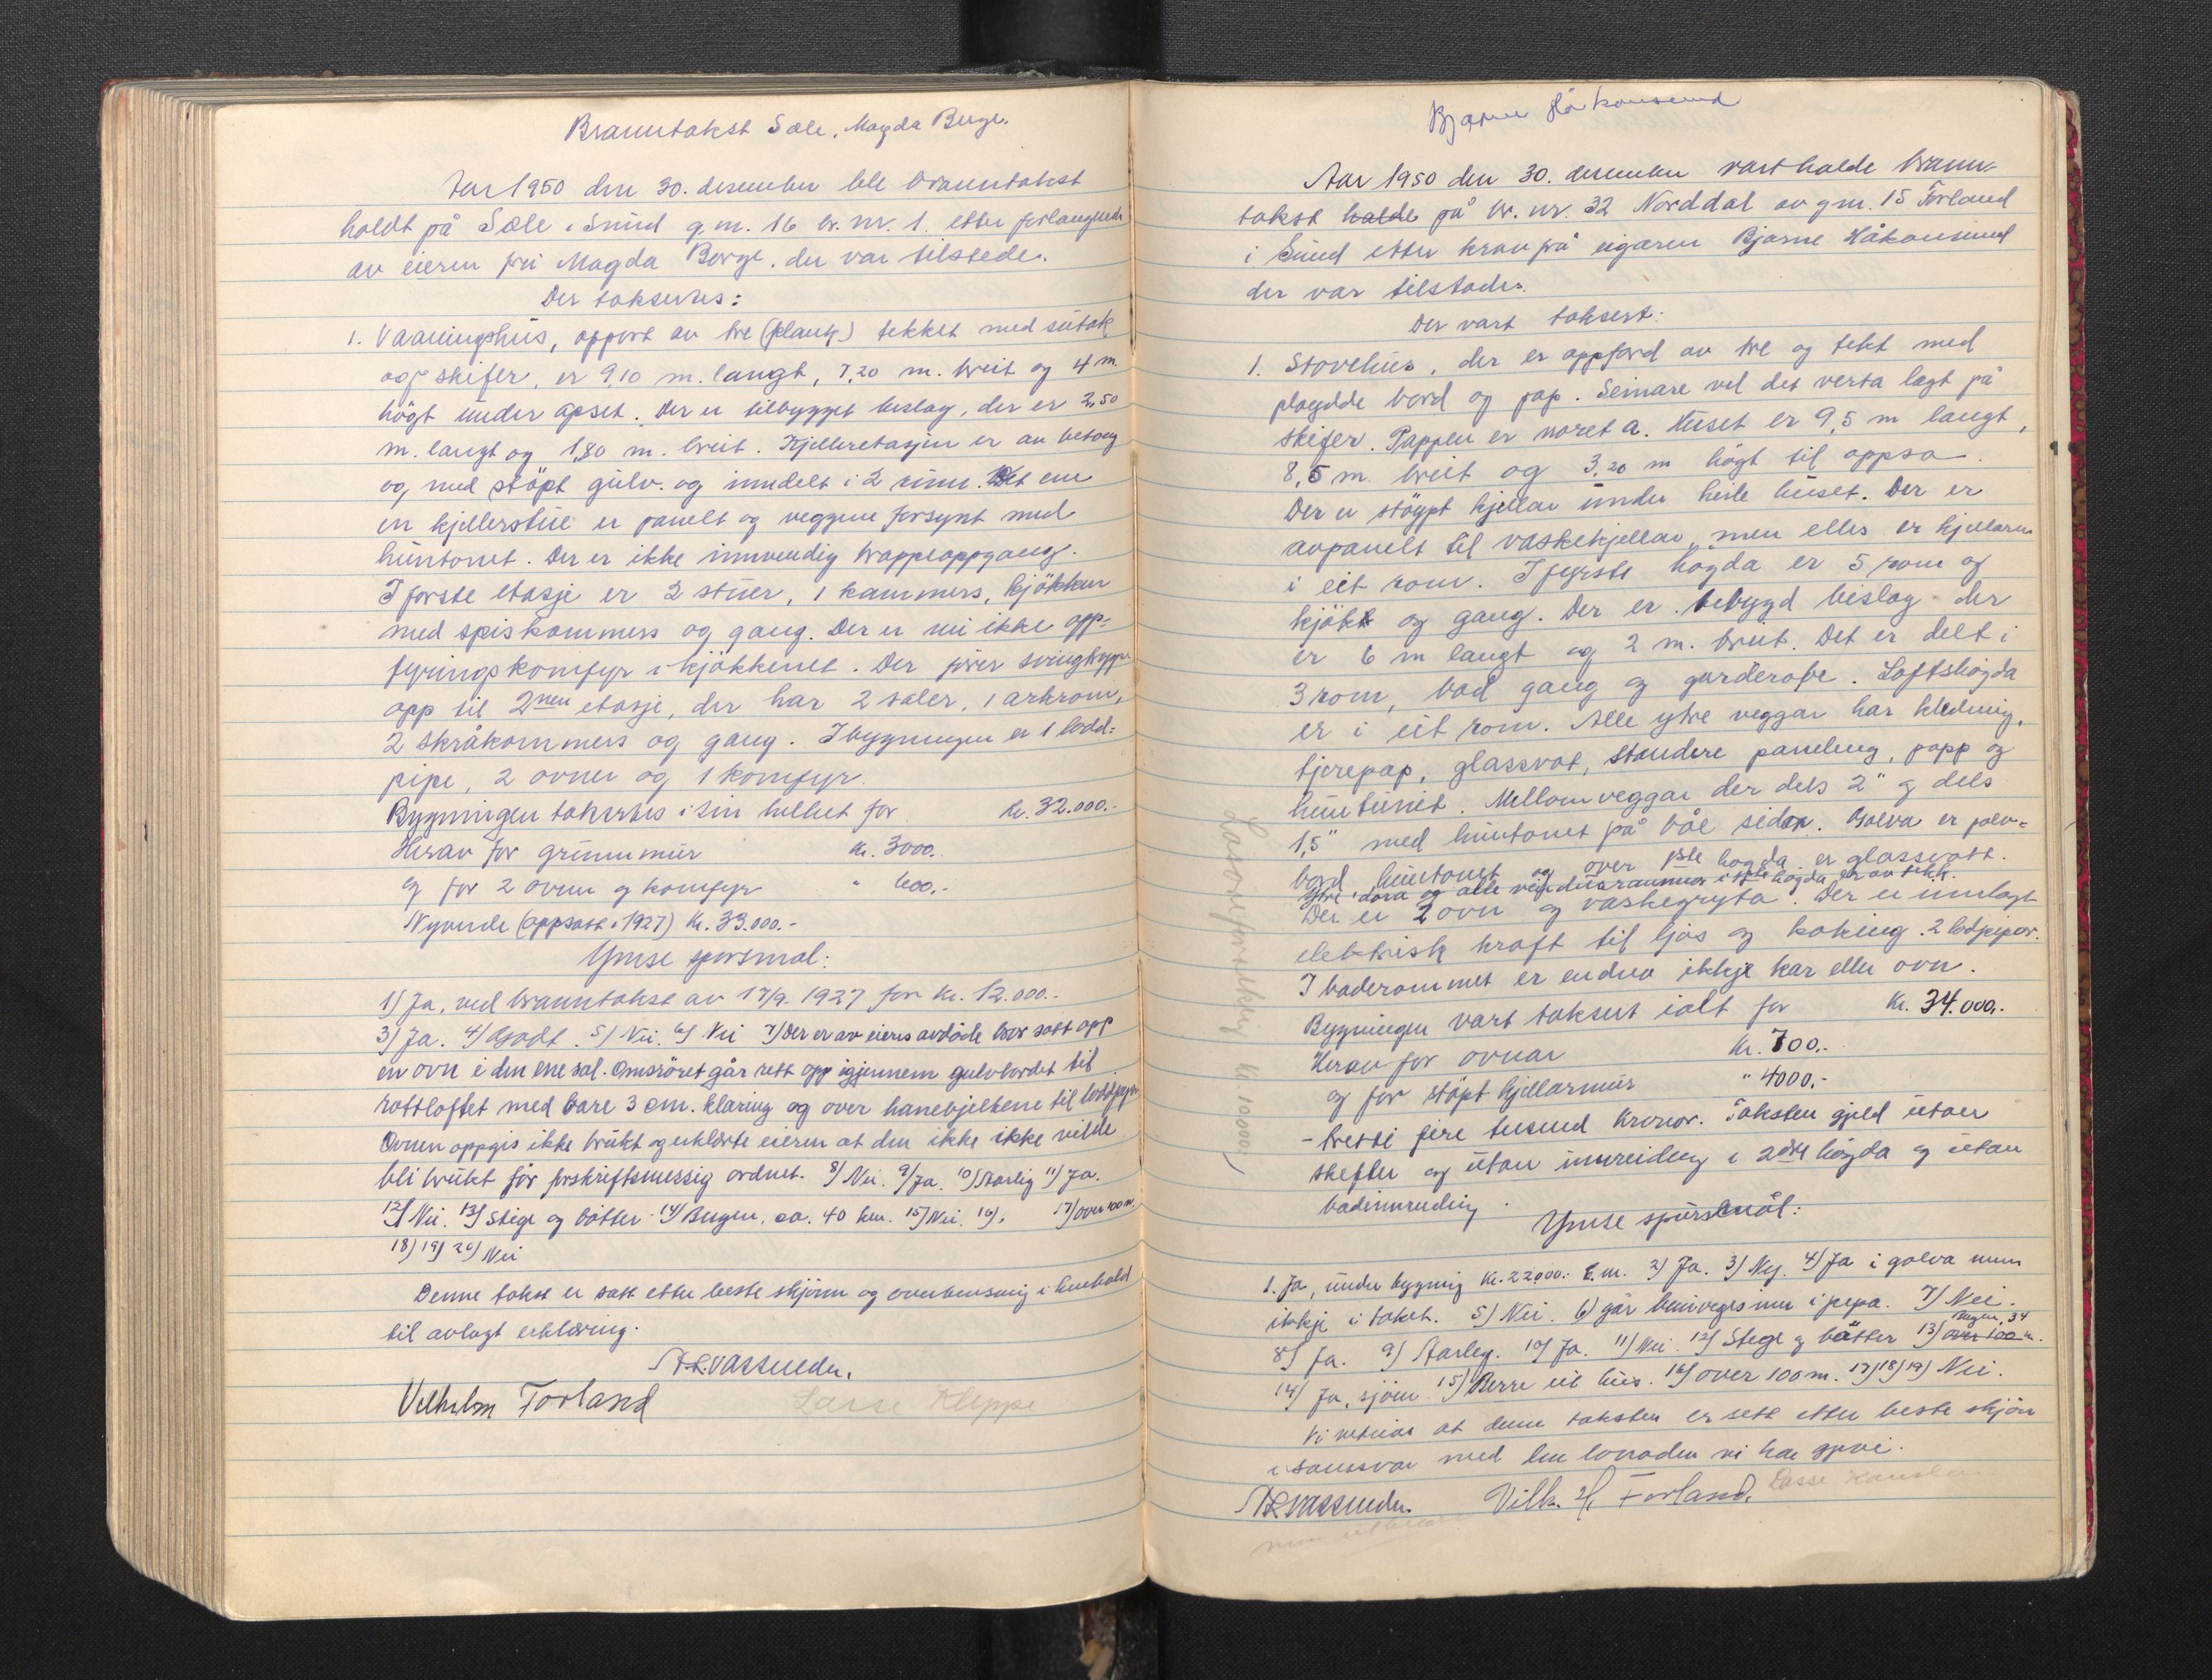 Branntakst Sæle, Magda Berge.
Aar 1950 den 30. desember ble branntakst
holdt på Sæle i Sund g.m. 16 br. nr. 1. etter forlangende
av eieren fru Magda Berge. der var tilstede.
Der takseres:
1. Vaaningshus, oppført av tre (plank) tekket med sutak
og skifer, er 9,10 m. langt, 7,20 m. breit og 4 m.
högt under öpset. Der er tilbygget beslag, der er 2,50
m. langt og 1,80 m. breit. Kjelleretasjen er av betong
og med stöpt gulv. og inndelt i 2 rum. Det ene
en kjellerstue er panelt og veggene forsynt med
huntonit. Der er ikke innvendig trappeoppgang.
I første etasje er 2 stuer, 1 kammers, kjökken
med spiskammers og gang. Der er nu ikke opp-
fyringskomfyr i kjökkenet. Der fører svingtrapp
opp til 2nen etasje, der har 2 saler, 1 arkrom,
2 skråkommers og gang. I bygningen er 1 lodd-
pipe, 2 ovner og 1 komfyr.
Bygningen takseres i sin helhet for kr. 32.000.-
Herav for grunnmur kr. 3000.-
og for 2 ovner og komfyr " 600.-
Nyverdi (oppsatt i 1927) kr. 33.000.-
Ymse spørsmal:
1) Ja, ved branntakst av 17/9. 1927 for kr. 12.000..
3) Ja. 4) Godt. 5) Nei. 6) Nei 7) Der er av eieres avdöde bror satt opp
en ovn i den ene sal. Omsröret går rett opp igjennem gulvbordet til
rottloftet med bare 3 cm. klaring og over hanebjelkene til loddpipa
Ovnen oppgis ikke brukt og erklærte eieren at den ikke ikke vilde
bli brukt før forskriftsmessig ordnet. 8) Nei. 9) Ja. 10) Aarlig 11) Ja.
12) Nei. 13) Stige og bötter 14) Bergen, ca. 40 km. 15) Nei. 16). 17) over 100 m.
18) 19) 20) Nei
Denne takst er satt etter beste skjønn og overbevisning i henhold
til avlagt erklæring.
Vilhelm Forland Lasse Kleppe
Bjarne Håkonsund
Aar 1950 den 30. desember vart halde brann-
takst halde på br. nr. 32 Norddal av gm. 15 Forland
i Sund etter krav frå eigaren Bjarne Håkonsund
der var tilstades.
Der vart taksert:
1. Stovehus, der er oppførd av tre og tekt med
pløgdde bord og pap. Seinare vel det verta lagt på
skifer. Pappen er noret a. Huset er 9,5 m langt,
8,5 m. breit og 3,20 m högt til oppsa.
Der er stöypt kjellar under heile huset. Der er
avpanelt til vaskekjellar, men elles er kjellaren
i eit rom. I fyrste högda er 5 rom og
kjökk og gang. Der er tilbygd beslag der
er 6 m langt og 2 m. breit. Det er delt i
3 rom, bad gang og garderobe. Loftshögda
er i eit rom. Alle ytre veggar har kledning,
tjærepap, glassvat, standere paneling, papp og
huntunit. Mellomveggar der dels 2" og dels
1,5" med huntonit på båe sider. Golva er pløv-
bord huntonit og over 1ste høgda er glassvatt.
Ytre døra og alle vindusrammer i 1ste høgda er av tekk.
Der er 2 ovn og vaskegryta. Der er innlagt
elektrisk kraft til ljos og koking. 2 lodpipor.
I baderommet er endno ikkje kar eller ovn.
Bygningen vart taksert ialt for kr. 34.000.-
Herav for ovnar kr. 700.-
og for stöpt kjellarmur " 4000.-
- tretti fire tusund kronor. Taksten gjeld utan
skifter og utan innreiding i 2dre högda og utan
badinnreding.
Ymse spursmål:
1. Ja, under bygning kr. 22000.- E.m. 2) Ja. 3) Ny. 4) Ja i golva men
ikkje i taket. 5) Nei. 6) går beinveges inn i pipa. 7) Nei.
8) Ja. 9) Aarleg. 10) Ja. 11) Nei. 12) Stege og bötter 13) over 100 m. Bergen, 34
14) Ja, sjöen 15) Berre eit hus. 16) over 100 m. 17) 18) 19) Nei.
Vi vitnar at denne taksten er sett etter beste skjön
i samsvar med den lovnaden vi har gjeve.
Vilh. H. Forland. Lasse